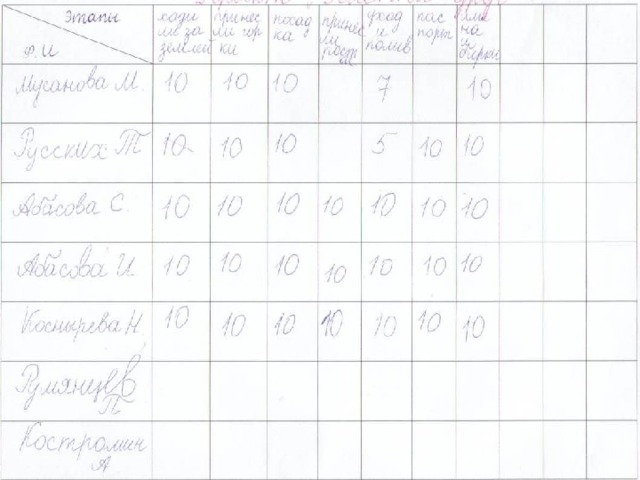 Этапы
Ф. И
ходи ли за землей
принес ли гор ки
посад ка
принес ли рост.
уход и полив
пас порт
имя на
Мусанова М. 10 10 10 7 10
Русских Т 10 10 10 5 10 10
Абасова С. 10 10 10 10 10 10 10
Абасова И. 10 10 10 10 10 10 10
Коснырева Н. 10 10 10 10 10 10 10
Румянцев
П
Костромин
А